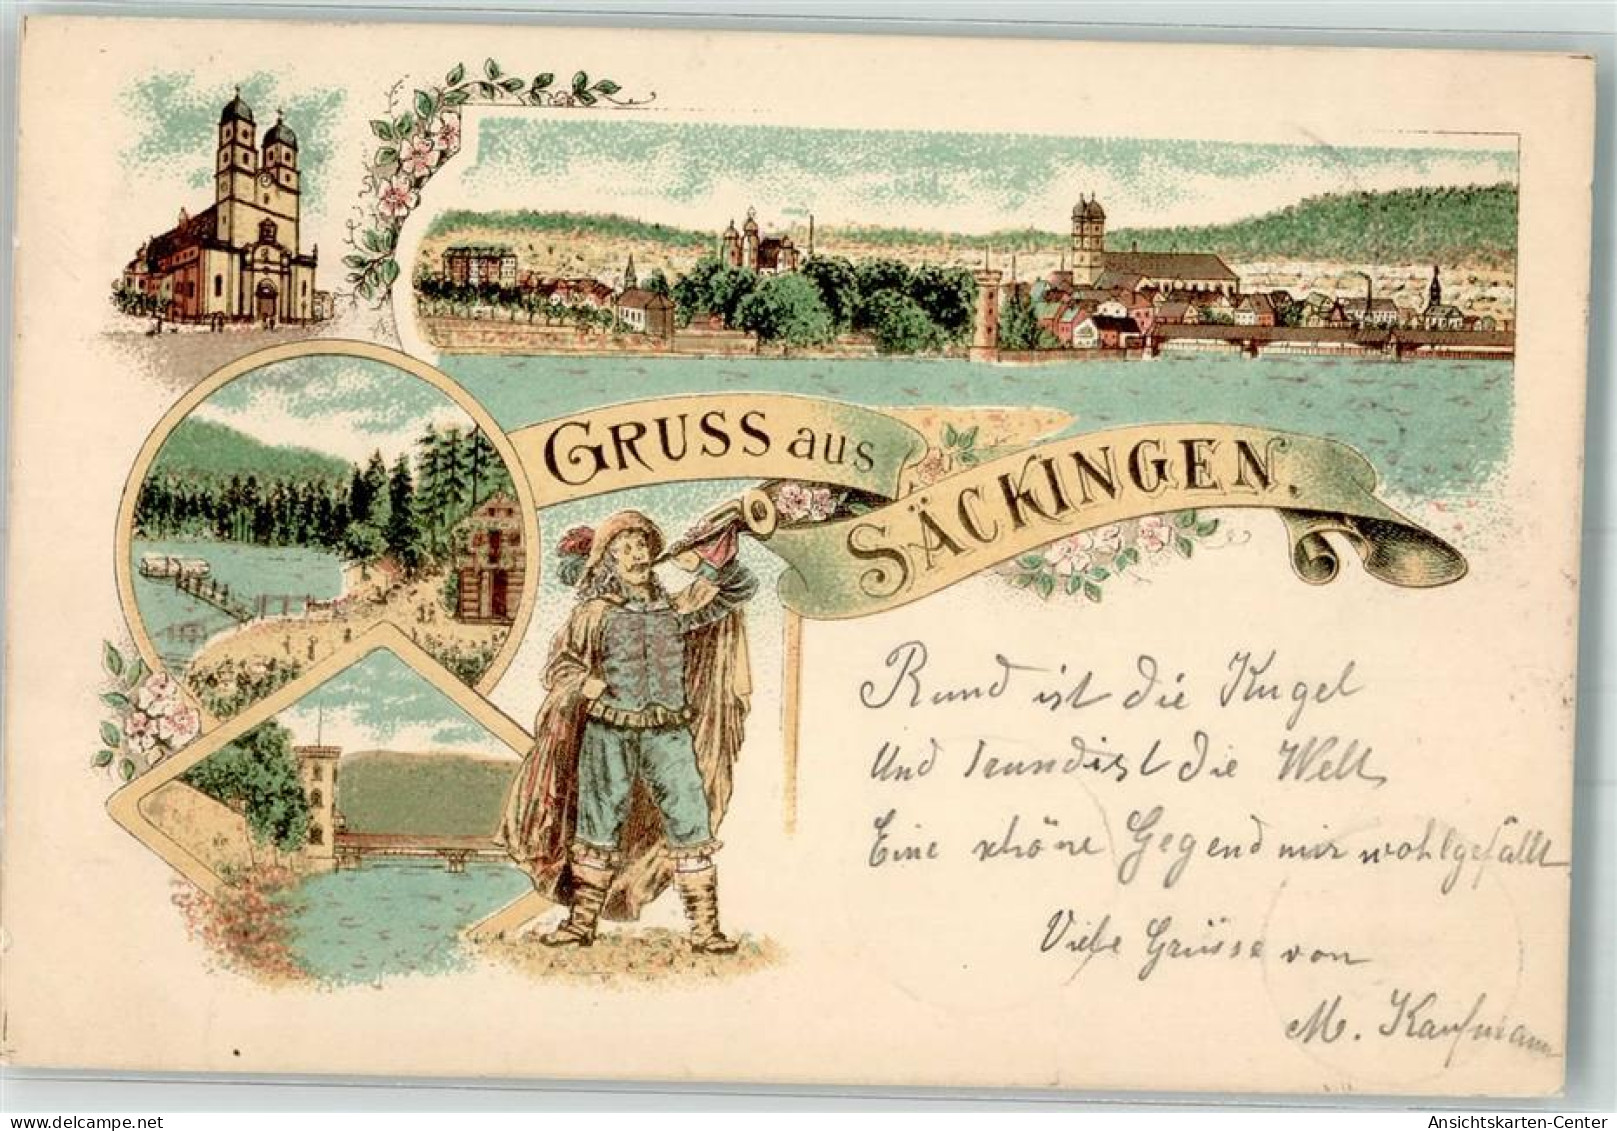 GRUSS aus
SÄCKINGEN.
Rund ist die Kugel
Und rund ist die Welt,
Eine schöne Gegend mir wohlgefällt
Viele Grüsse von
M. Kaufmann
Ansichtskarten-Center